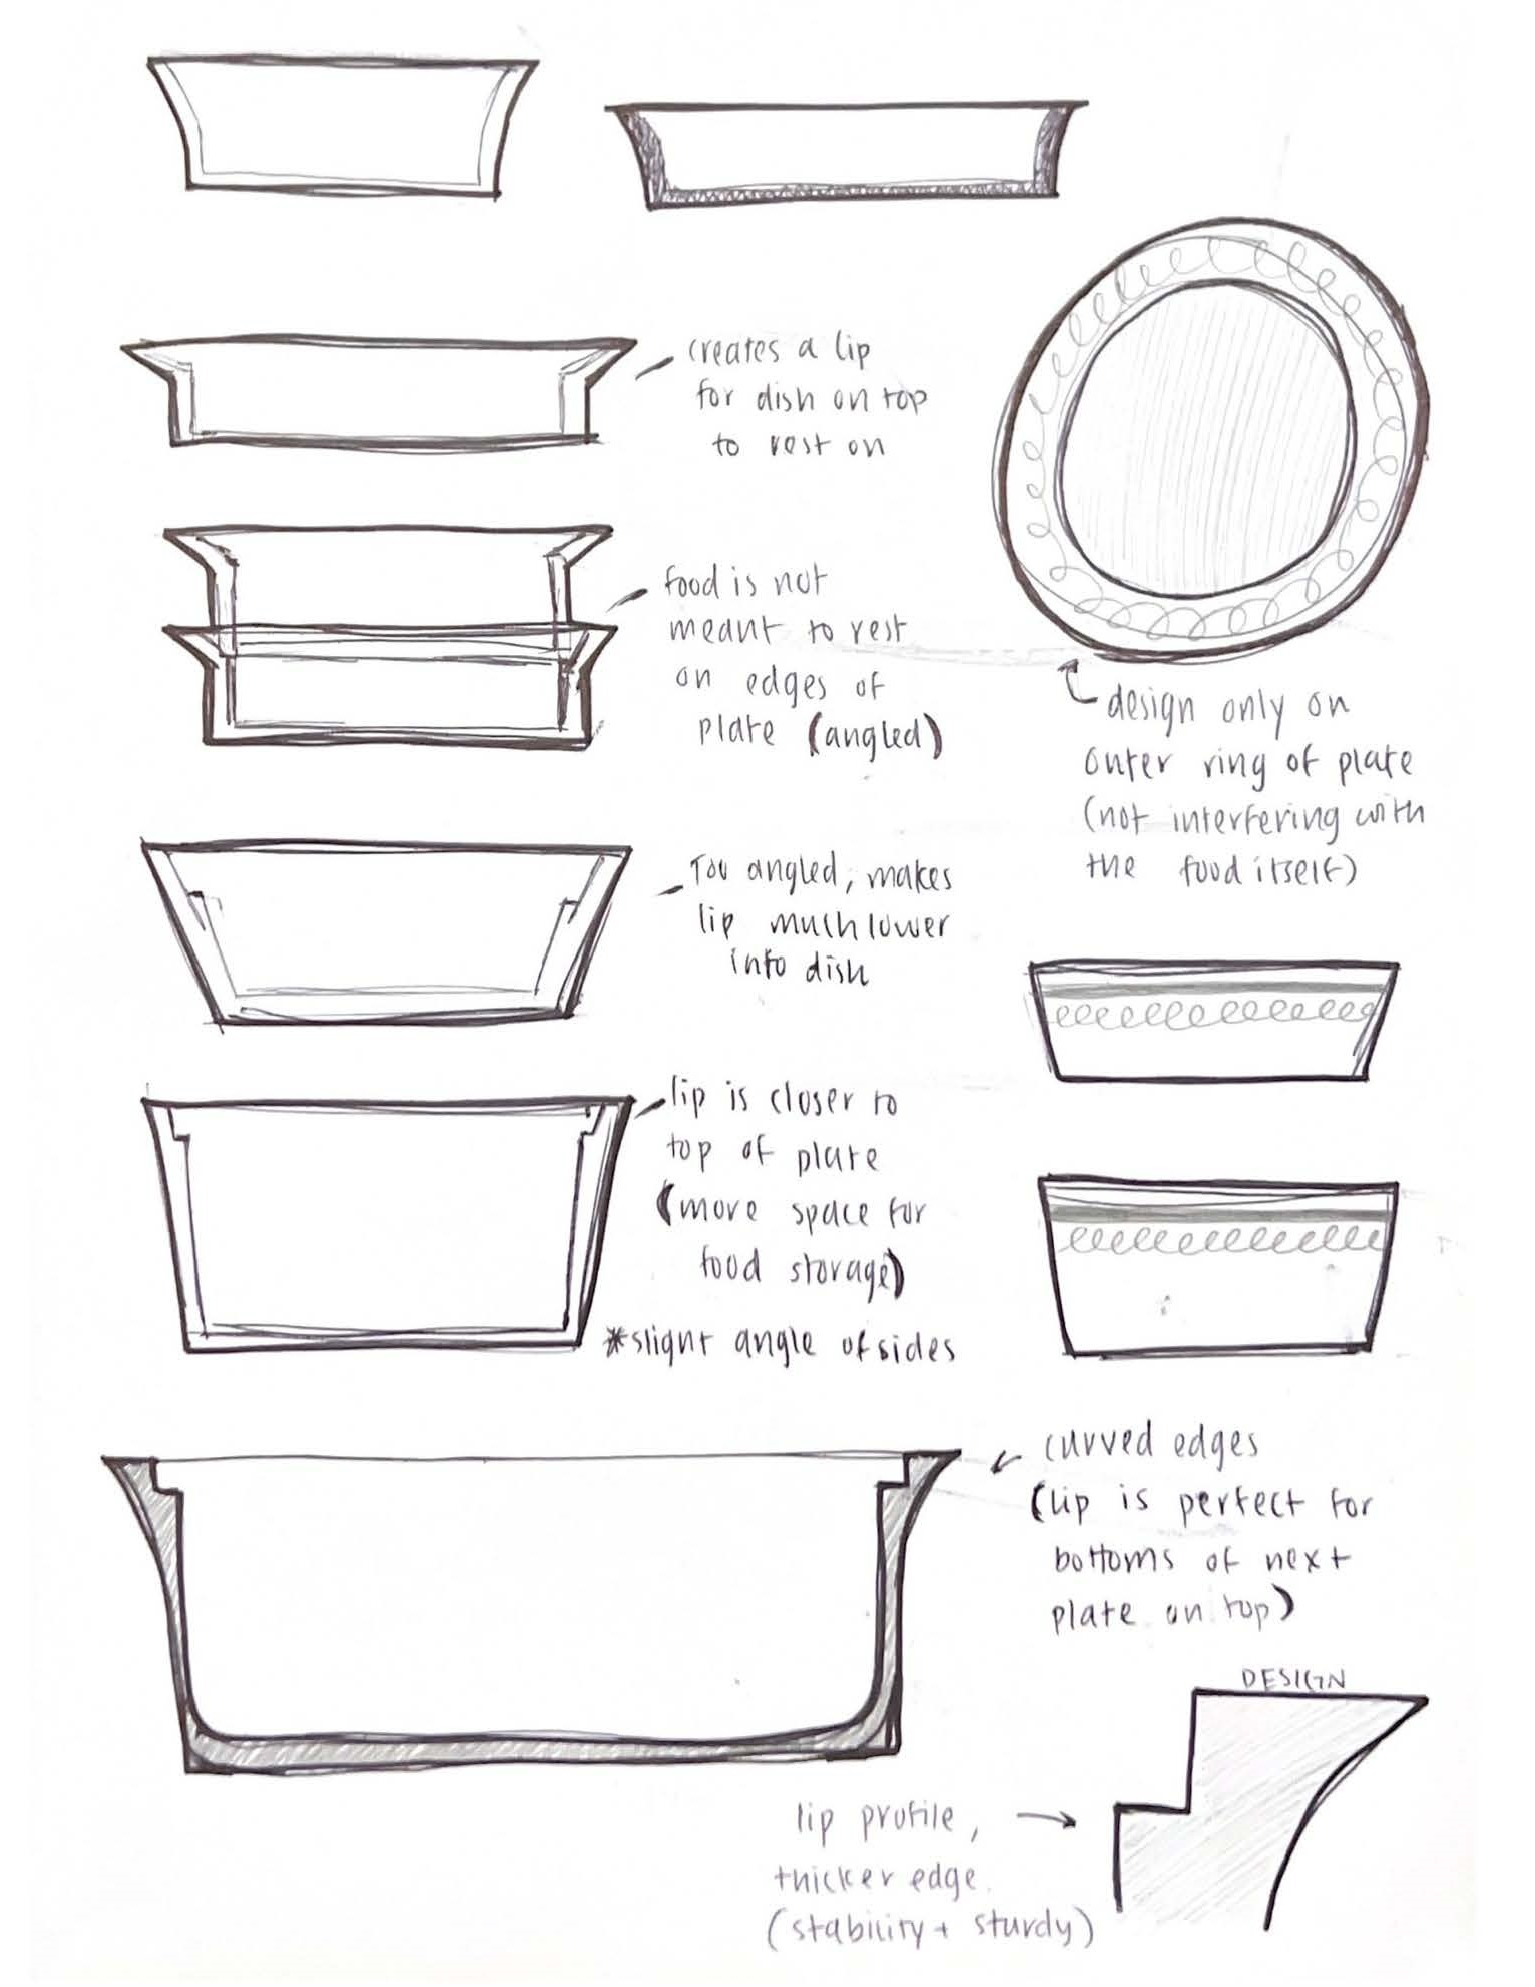 creates a lip
for dish on top
to rest on
food is not
meant to rest
on edges of
plate (angled)
design only on
outer ring of plate
(not interfering with
the food itself)
Too angled, makes
lip much lower
into dish
lip is closer to
top of plate
(more space for
food storage)
*slight angle of sides
curved edges
(lip is perfect for
bottoms of next
plate on top)
DESIGN
lip profile,
thicker edge.
(stability + sturdy)